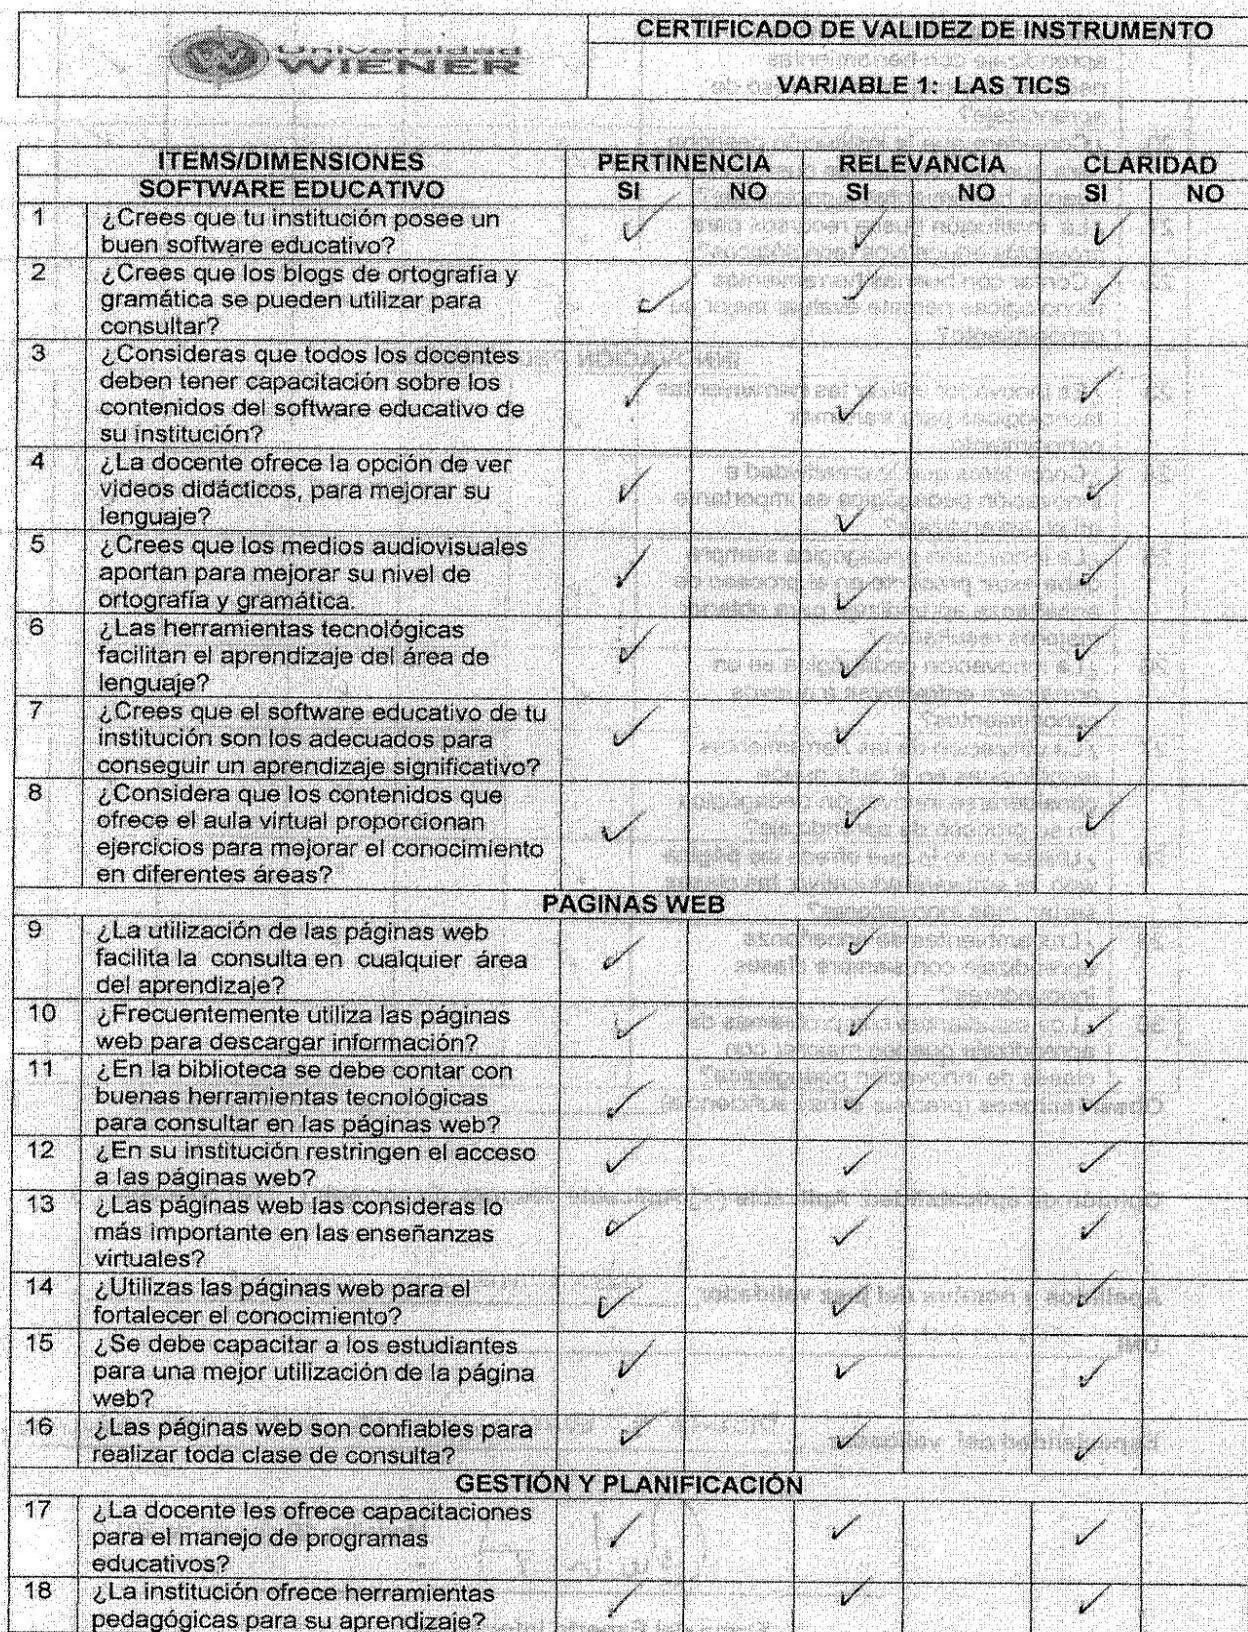 Universidad
WIENER
CERTIFICADO DE VALIDEZ DE INSTRUMENTO
VARIABLE 1: LAS TICS
ITEMS/DIMENSIONES PERTINENCIA RELEVANCIA CLARIDAD
SOFTWARE EDUCATIVO SI NO SI NO SI NO
1 ¿Crees que tu institución posee un
buen software educativo? ✓ ✓ ✓
2 ¿Crees que los blogs de ortografía y
gramática se pueden utilizar para
consultar? ✓ ✓ ✓
3 ¿Consideras que todos los docentes
deben tener capacitación sobre los
contenidos del software educativo de
su institución? ✓ ✓ ✓
4 ¿La docente ofrece la opción de ver
videos didácticos, para mejorar su
lenguaje? ✓ ✓ ✓
5 ¿Crees que los medios audiovisuales
aportan para mejorar su nivel de
ortografía y gramática. ✓ ✓ ✓
6 ¿Las herramientas tecnológicas
facilitan el aprendizaje del área de
lenguaje? ✓ ✓ ✓
7 ¿Crees que el software educativo de tu
institución son los adecuados para
conseguir un aprendizaje significativo? ✓ ✓ ✓
8 ¿Considera que los contenidos que
ofrece el aula virtual proporcionan
ejercicios para mejorar el conocimiento
en diferentes áreas? ✓ ✓ ✓
PAGINAS WEB
9 ¿La utilización de las páginas web
facilita la consulta en cualquier área
del aprendizaje? ✓ ✓ ✓
10 ¿Frecuentemente utiliza las páginas
web para descargar información? ✓ ✓ ✓
11 ¿En la biblioteca se debe contar con
buenas herramientas tecnológicas
para consultar en las páginas web? ✓ ✓ ✓
12 ¿En su institución restringen el acceso
a las páginas web? ✓ ✓ ✓
13 ¿Las páginas web las consideras lo
más importante en las enseñanzas
virtuales? ✓ ✓ ✓
14 ¿Utilizas las páginas web para el
fortalecer el conocimiento? ✓ ✓ ✓
15 ¿Se debe capacitar a los estudiantes
para una mejor utilización de la página
web? ✓ ✓ ✓
16 ¿Las páginas web son confiables para
realizar toda clase de consulta? ✓ ✓ ✓
GESTIÓN Y PLANIFICACIÓN
17 ¿La docente les ofrece capacitaciones
para el manejo de programas
educativos? ✓ ✓ ✓
18 ¿La institución ofrece herramientas
pedagógicas para su aprendizaje? ✓ ✓ ✓